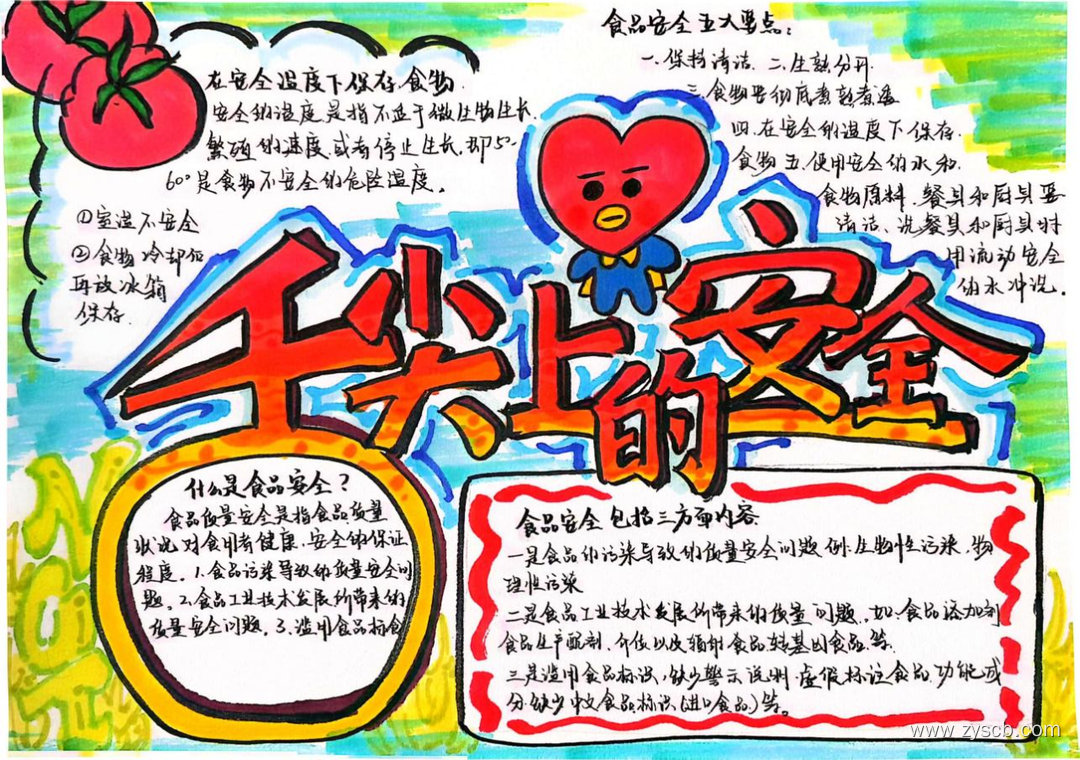 在安全温度下保存食物
安全的温度是指不适于微生物生长.
繁殖的速度或者停止生长.即5°
60°是食物不安全的危险温度。
①室温不安全
②食物冷却后
再放冰箱
保存.
食品安全五大要点：
一.保持清洁.二.生熟分开
三.食物要彻底煮熟煮透
四.在安全的温度下保存.
食物五.使用安全的水和.
食物原料.餐具和厨具要
清洁、洗餐具和厨具时
用流动安全
的水冲洗.
舌尖上的安全
什么是食品安全？
食品质量安全是指食品质量
状况对食用者健康.安全的保证
程度。1.食品污染导致的质量安全问
题。2.食品工业技术发展所带来的
质量安全问题。3.滥用食品标食
食品安全包括三方面内容
一是食品的污染导致的质量安全问题.例:生物性污染.物
理性污染
二是食品工业技术发展所带来的质量问题.如:食品添加剂
食品生产配制.介质以及辐射食品.转基因食品.等.
三是滥用食品标识,缺少警示说明.虚假标注食品.功能或
分.缺少中文食品标识(进口食品)等。
NOI
www.zyscb.com